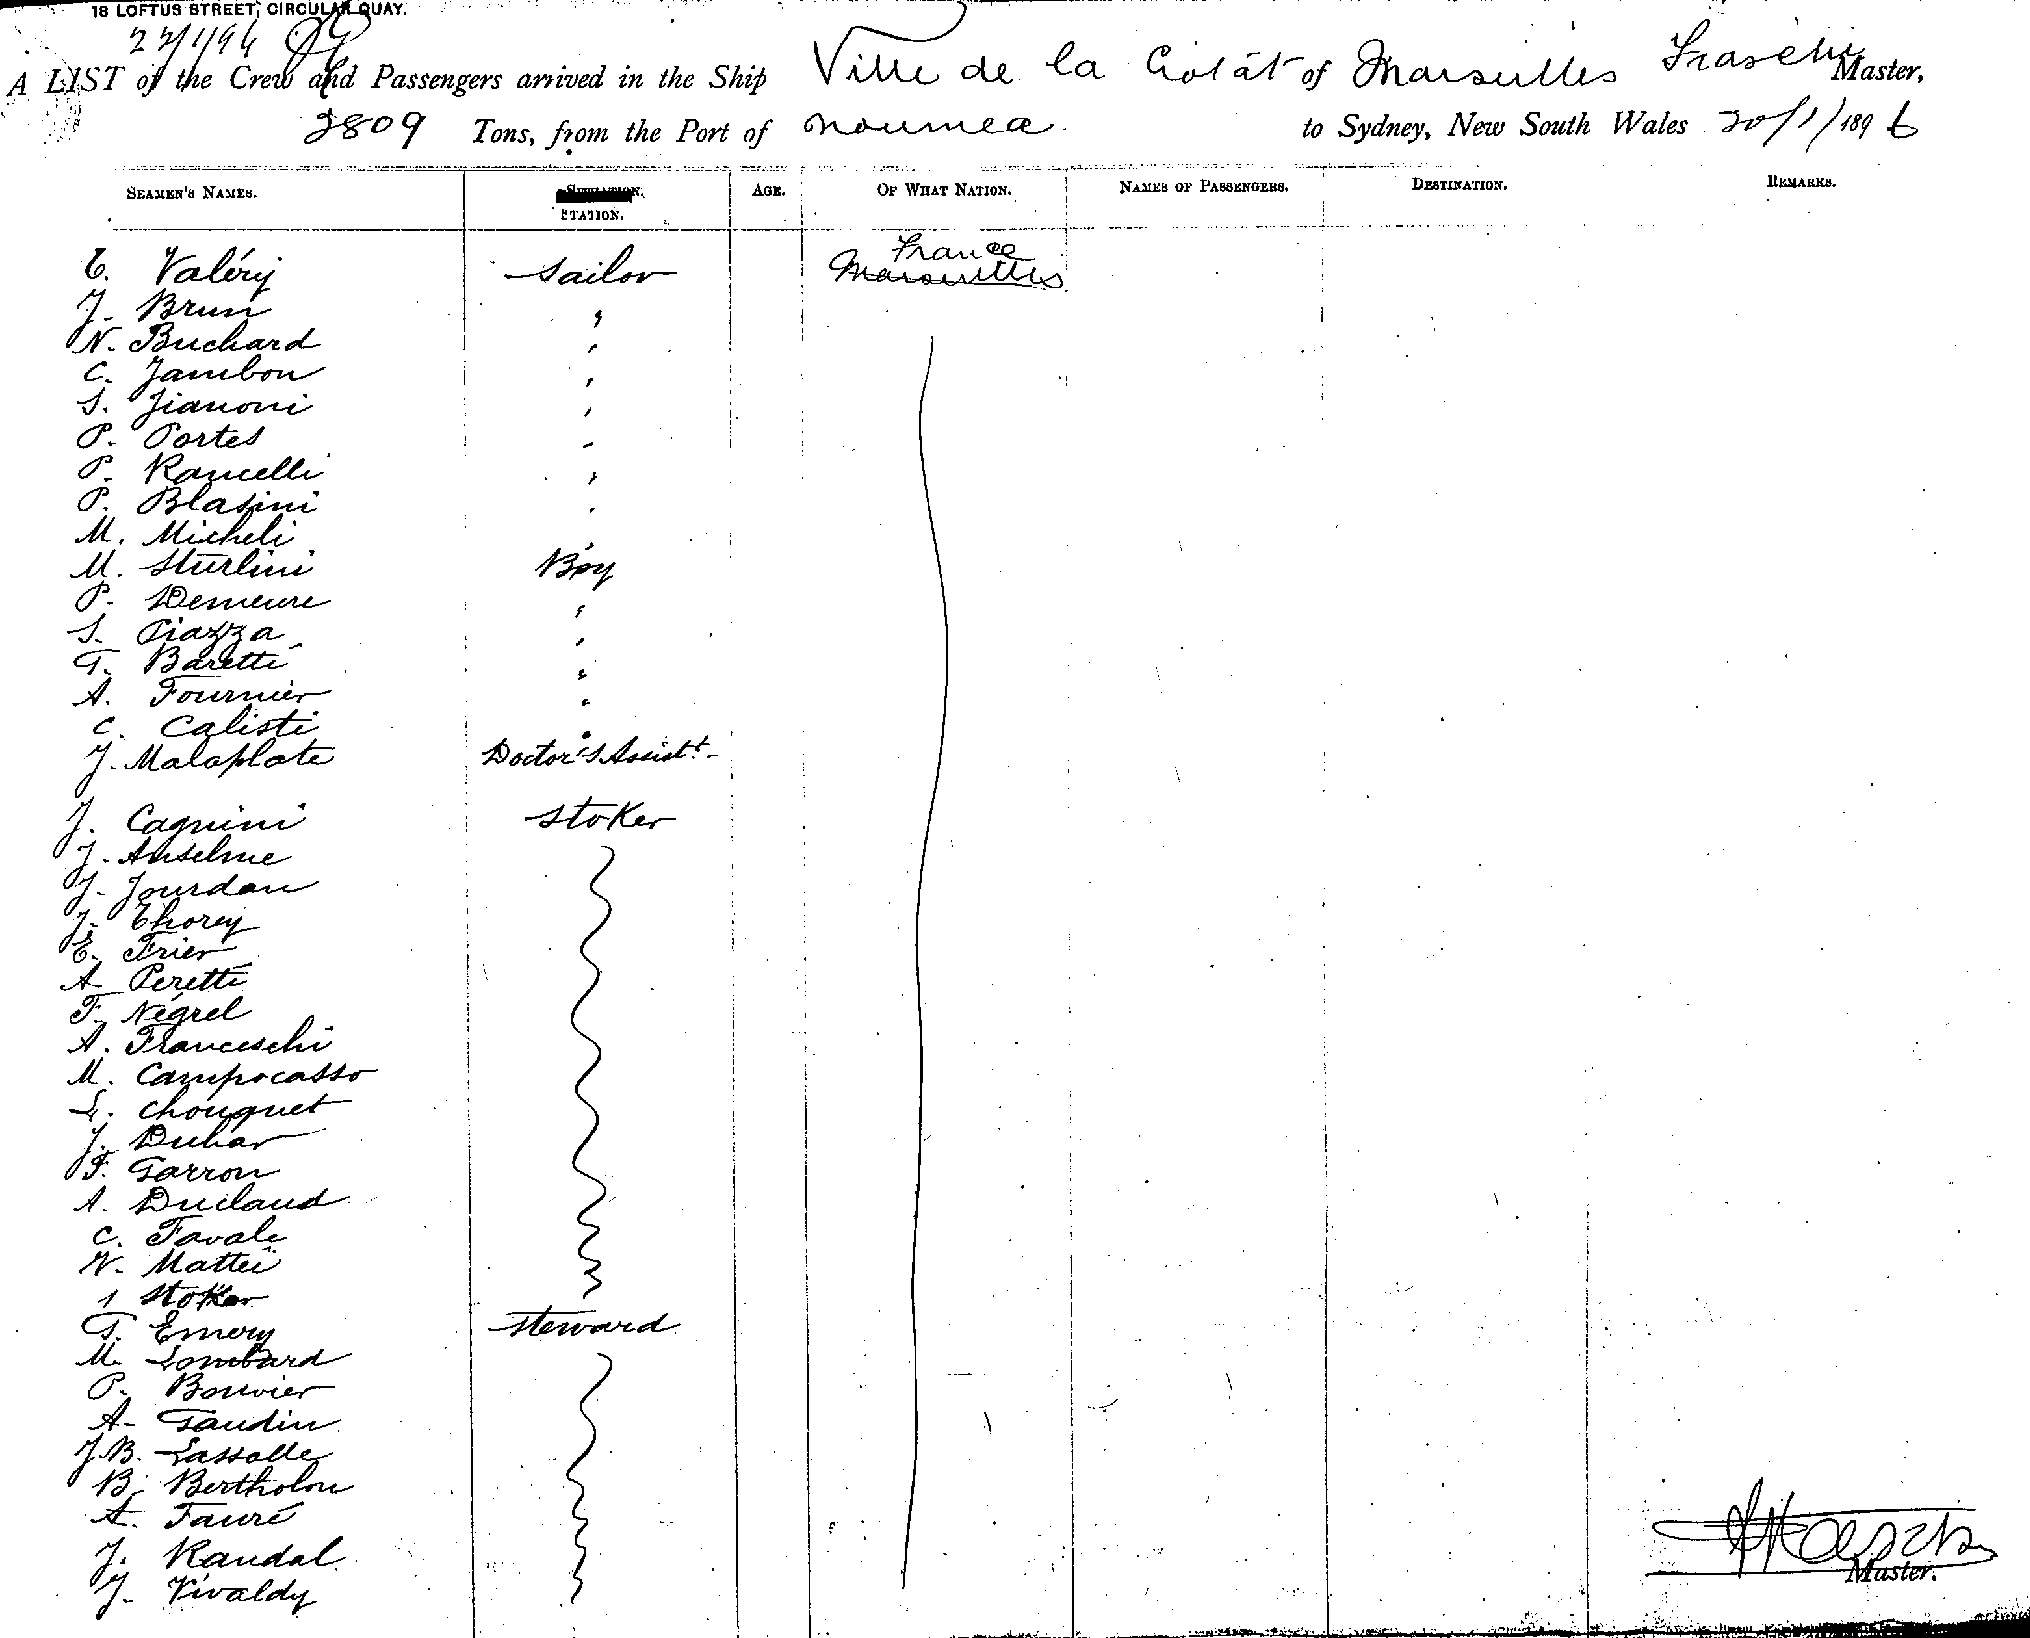 18 LOFTUS STREET, CIRCULAR QUAY.
22/1/96
A LIST of the Crew and Passengers arrived in the Ship Ville de la Ciotât of Marseilles Master,
2809 Tons, from the Port of Noumea to Sydney, New South Wales 20/1/1896
SEAMEN'S NAMES. STATION. AGE. OF WHAT NATION. NAMES OF PASSENGERS. DESTINATION. REMARKS.
France
E. Valéry Sailor Marseilles
J. Brun "
N. Buchard "
C. Jambon "
S. Jianoni "
P. Portes "
P. Rancelli "
P. Blasini "
M. Micheli "
M. Sturlini Boy
P. Demeure "
S. Piazza "
T. Baretti "
A. Fournier "
C. Calisti "
J. Malaplate Doctor's Assistt.
J. Cagnini Stoker
J. Anselme
J. Jourdan
J. Thorey
E. Frier
A. Peretti
F. Négrel
A. Franceschi
M. Campocasso
L. Chouquet
J. Duhar
F. Garron
A. Duclaud
C. Favale
N. Matteï
1 Stoker
G. Emery Steward
M. Lombard
P. Bouvier
A. Gaudin
J.B. Lassalle
B. Bertholon
A. Fauré
J. Randal
J. Vivaldy
Master.